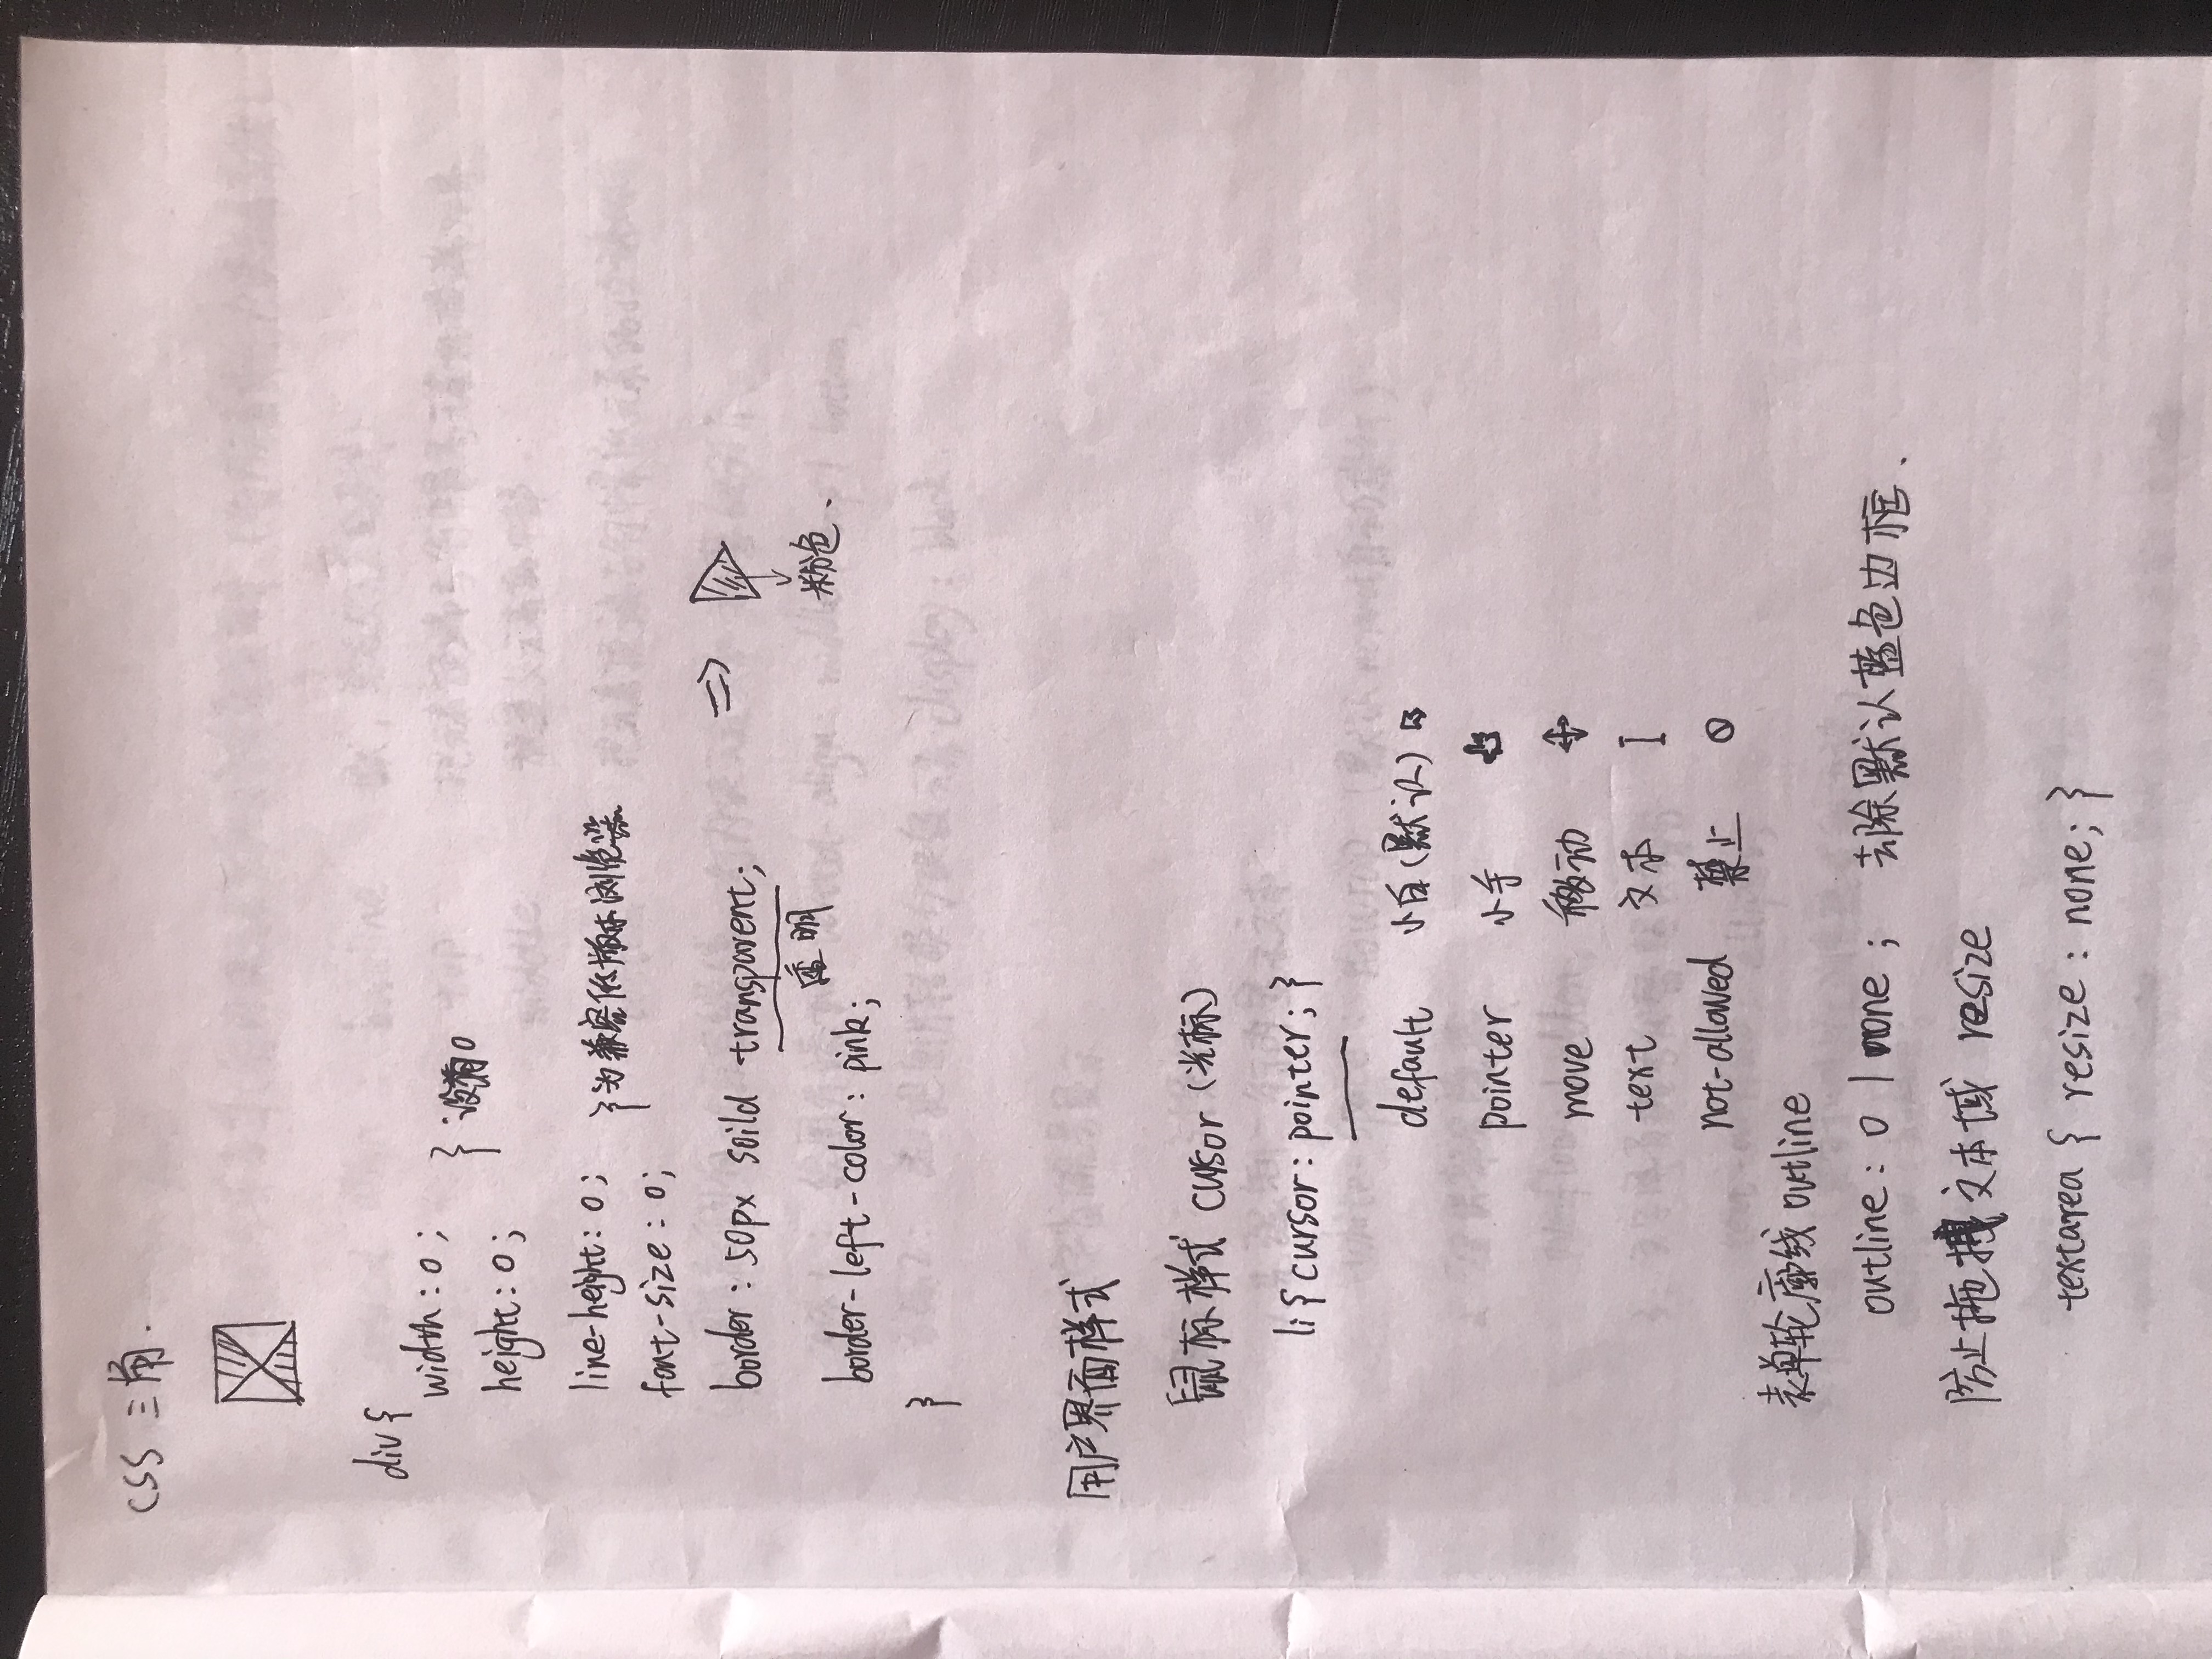 CSS 三角.
div {
width : 0 ;
} 设为0
height : 0 ;
line-height : 0 ;
} 为兼容低版本浏览器
font-size : 0 ;
border : 50px soild transparent ;
⇒
透明
粉色 .
border-left-color : pink ;
}
用户界面样式
鼠标样式 cursor (光标)
li { cursor : pointer ; }
default 小白(默认)
pointer 小手
move 移动
text 文本
not-allowed 禁止
表单轮廓线 outline
outline : 0 | none ; 去除默认蓝色边框 .
防止拖拽文本域 resize
textarea { resize : none ; }